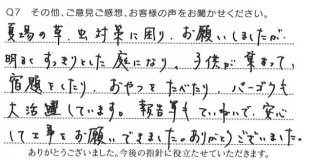 Q7 その他、ご意見ご感想、お客様の声をお聞かせください。
夏場の草、虫対策に困り、お願いしましたが、
明るくすっきりとした庭になり、子供が集まって、
宿題をしたり、おやつをたべたり、パーゴラも
大活躍しています。報告等もていねいで、安心
して工事をお願いできました。ありがとうございました。
ありがとうございました。今後の指針に役立たせていただきます。